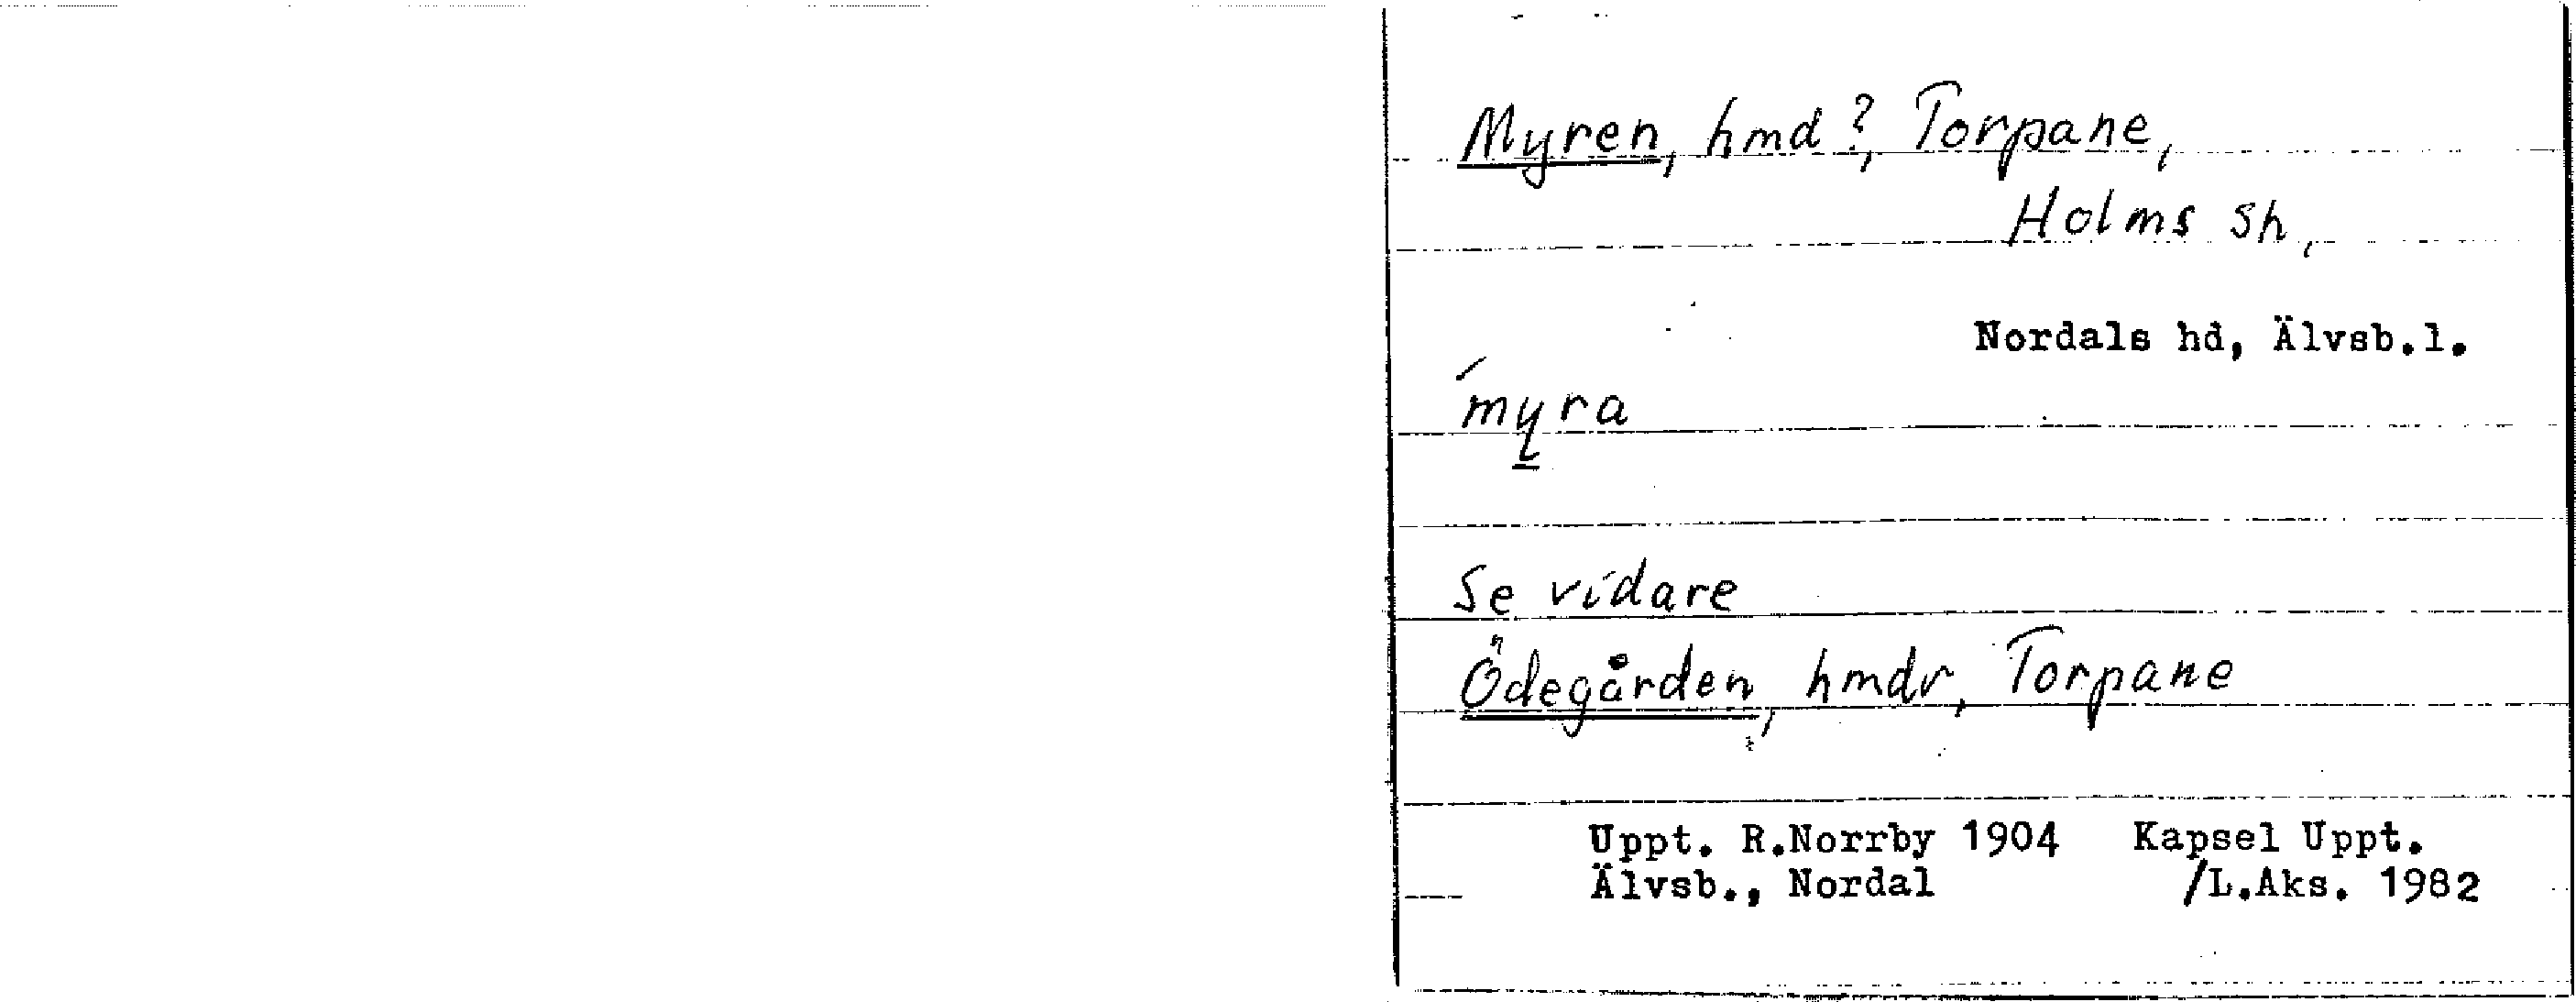 Myren, hmd?, Torpane,
Holms sh,
Nordals hd, Älvsb.l.
ḿyra
Se vidare
Ödegården, hmdr, Torpane
Uppt. R.Norrby 1904 Kapsel Uppt.
Älvsb., Nordal /L.Aks. 1982